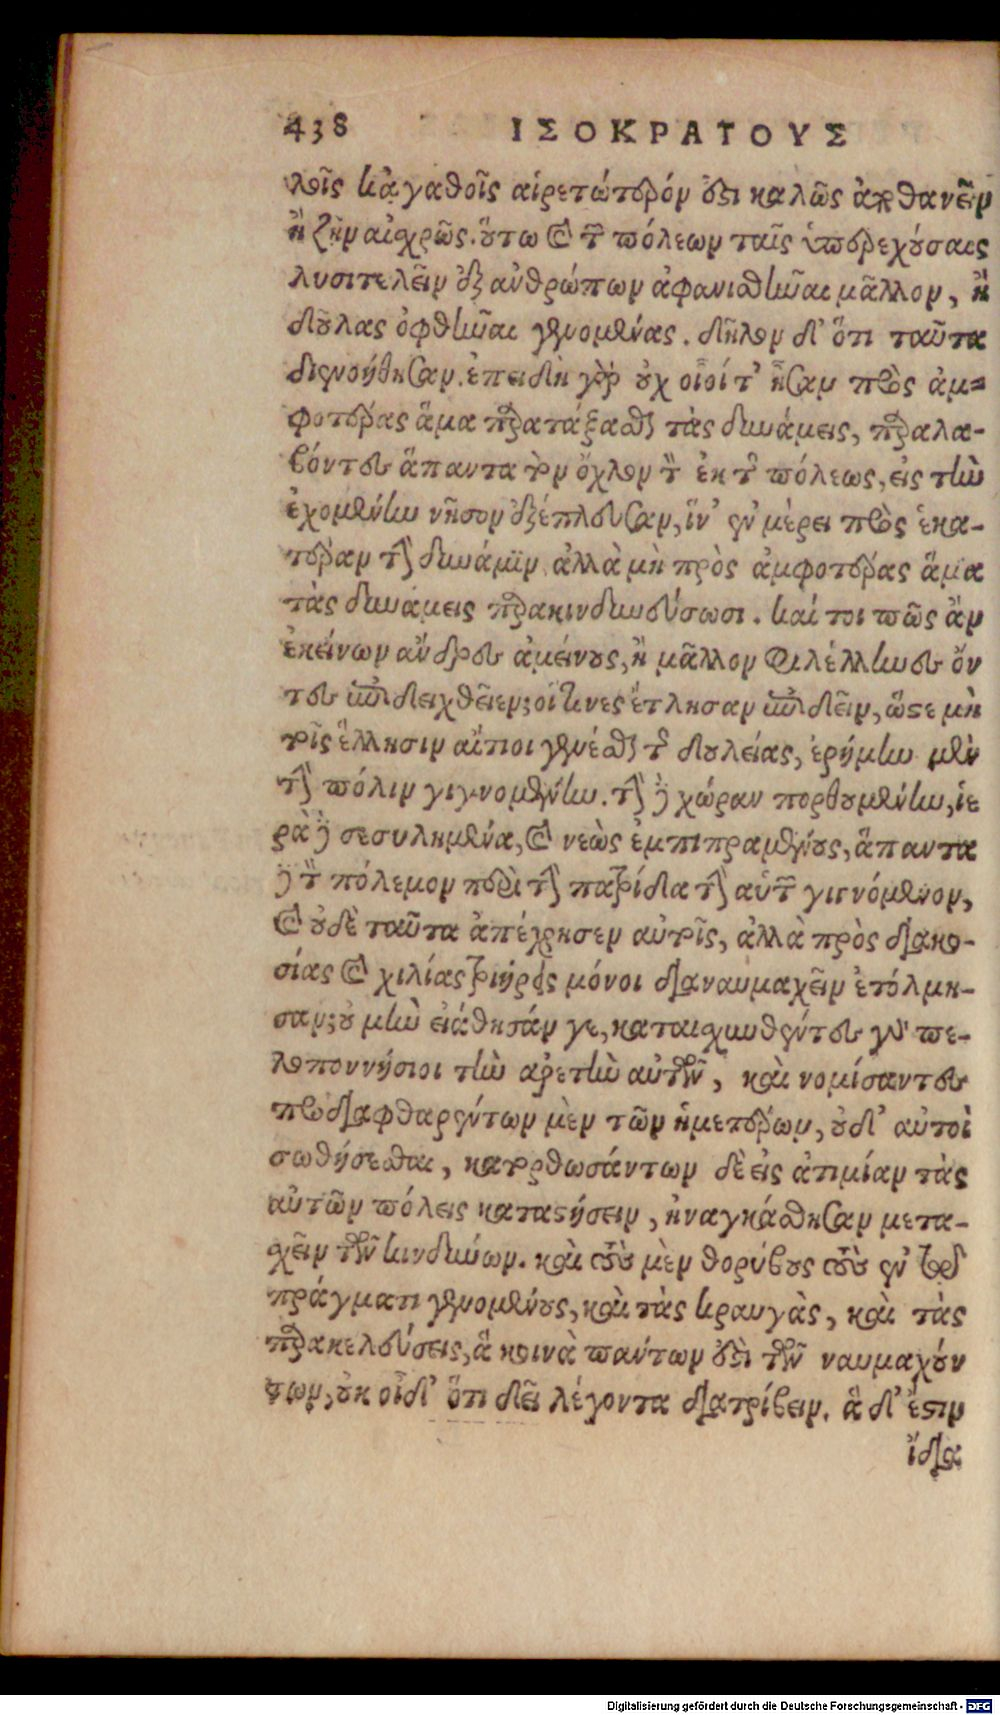 438 ΙΣΟΚΡΑΤΟΥΣ
λοῖς κἀγαθοῖς αἱρετώτερόν ἐστι καλῶς ἀποθανεῖν
ἢ ζῆν αἰσχρῶς. οὕτω καὶ τῶν πόλεων ταῖς ὑπερεχούσαις
λυσιτελεῖν ἐξ ἀνθρώπων ἀφανισθῆναι μᾶλλον, ἢ
δούλας ὀφθῆναι γενομένας. δῆλον δ' ὅτι ταῦτα
διενοήθησαν. ἐπειδὴ γὰρ οὐχ οἷοί τ' ἦσαν πρὸς ἀμ-
φοτέρας ἅμα παρατάξασθαι τὰς δυνάμεις, παραλα-
βόντες ἅπαντα τὸν ὄχλον τὸν ἐκ τῆς πόλεως, εἰς τὴν
ἐχομένην νῆσον ἐξέπλευσαν, ἵν' ἐν μέρει πρὸς ἑκα-
τέραν τὴν δύναμιν ἀλλὰ μὴ πρὸς ἀμφοτέρας ἅμα
τὰς δυνάμεις παρακινδυνεύσωσι. καί τοι πῶς ἂν
ἐκείνων ἄνδρες ἀμείνους, ἢ μᾶλλον φιλέλληνες ὄν
τες ἐπιδειχθεῖεν; οἵτινες ἔτλησαν ἐπιδεῖν, ὥστε μὴ
τοῖς ἕλλησιν αἴτιοι γενέσθαι τῆς δουλείας, ἐρήμην μὲν
τὴν πόλιν γιγνομένην. τὴν δὲ χώραν πορθουμένην, ἱε
ρὰ δὲ σεσυλημένα, καὶ νεὼς ἐμπιπραμένους, ἅπαντα
δὲ τὸν πόλεμον περὶ τὴν πατρίδα τὴν αὑτῶν γιγνόμενον,
καὶ οὐδὲ ταῦτα ἀπέχρησεν αὐτοῖς, ἀλλὰ πρὸς διακο-
σίας καὶ χιλίας τριήρεις μόνοι διαναυμαχεῖν ἐτόλμη-
σαν; οὐ μὴν εἰάθησάν γε, καταισχυνθέντες γὰρ πε-
λοποννήσιοι τὴν ἀρετὴν αὐτῶν, καὶ νομίσαντες
προδιαφθαρέντων μὲν τῶν ἡμετέρων, οὐδ' αὐτοὶ
σωθήσεσθαι, κατορθωσάντων δὲ εἰς ἀτιμίαν τὰς
αὑτῶν πόλεις καταστήσειν, ἠναγκάσθησαν μετα-
σχεῖν τῶν κινδύνων. καὶ τοὺς μὲν θορύβους τοὺς ἐν τῷ
πράγματι γενομένους, καὶ τὰς κραυγὰς, καὶ τὰς
παρακελεύσεις, ἃ κοινὰ πάντων ἐστὶ τῶν ναυμαχούν
των, οὐκ οἶδ' ὅτι δεῖ λέγοντα διατρίβειν. ἃ δ' ἔστιν
ἴδια
Digitalisierung gefördert durch die Deutsche Forschungsgemeinschaft - DFG